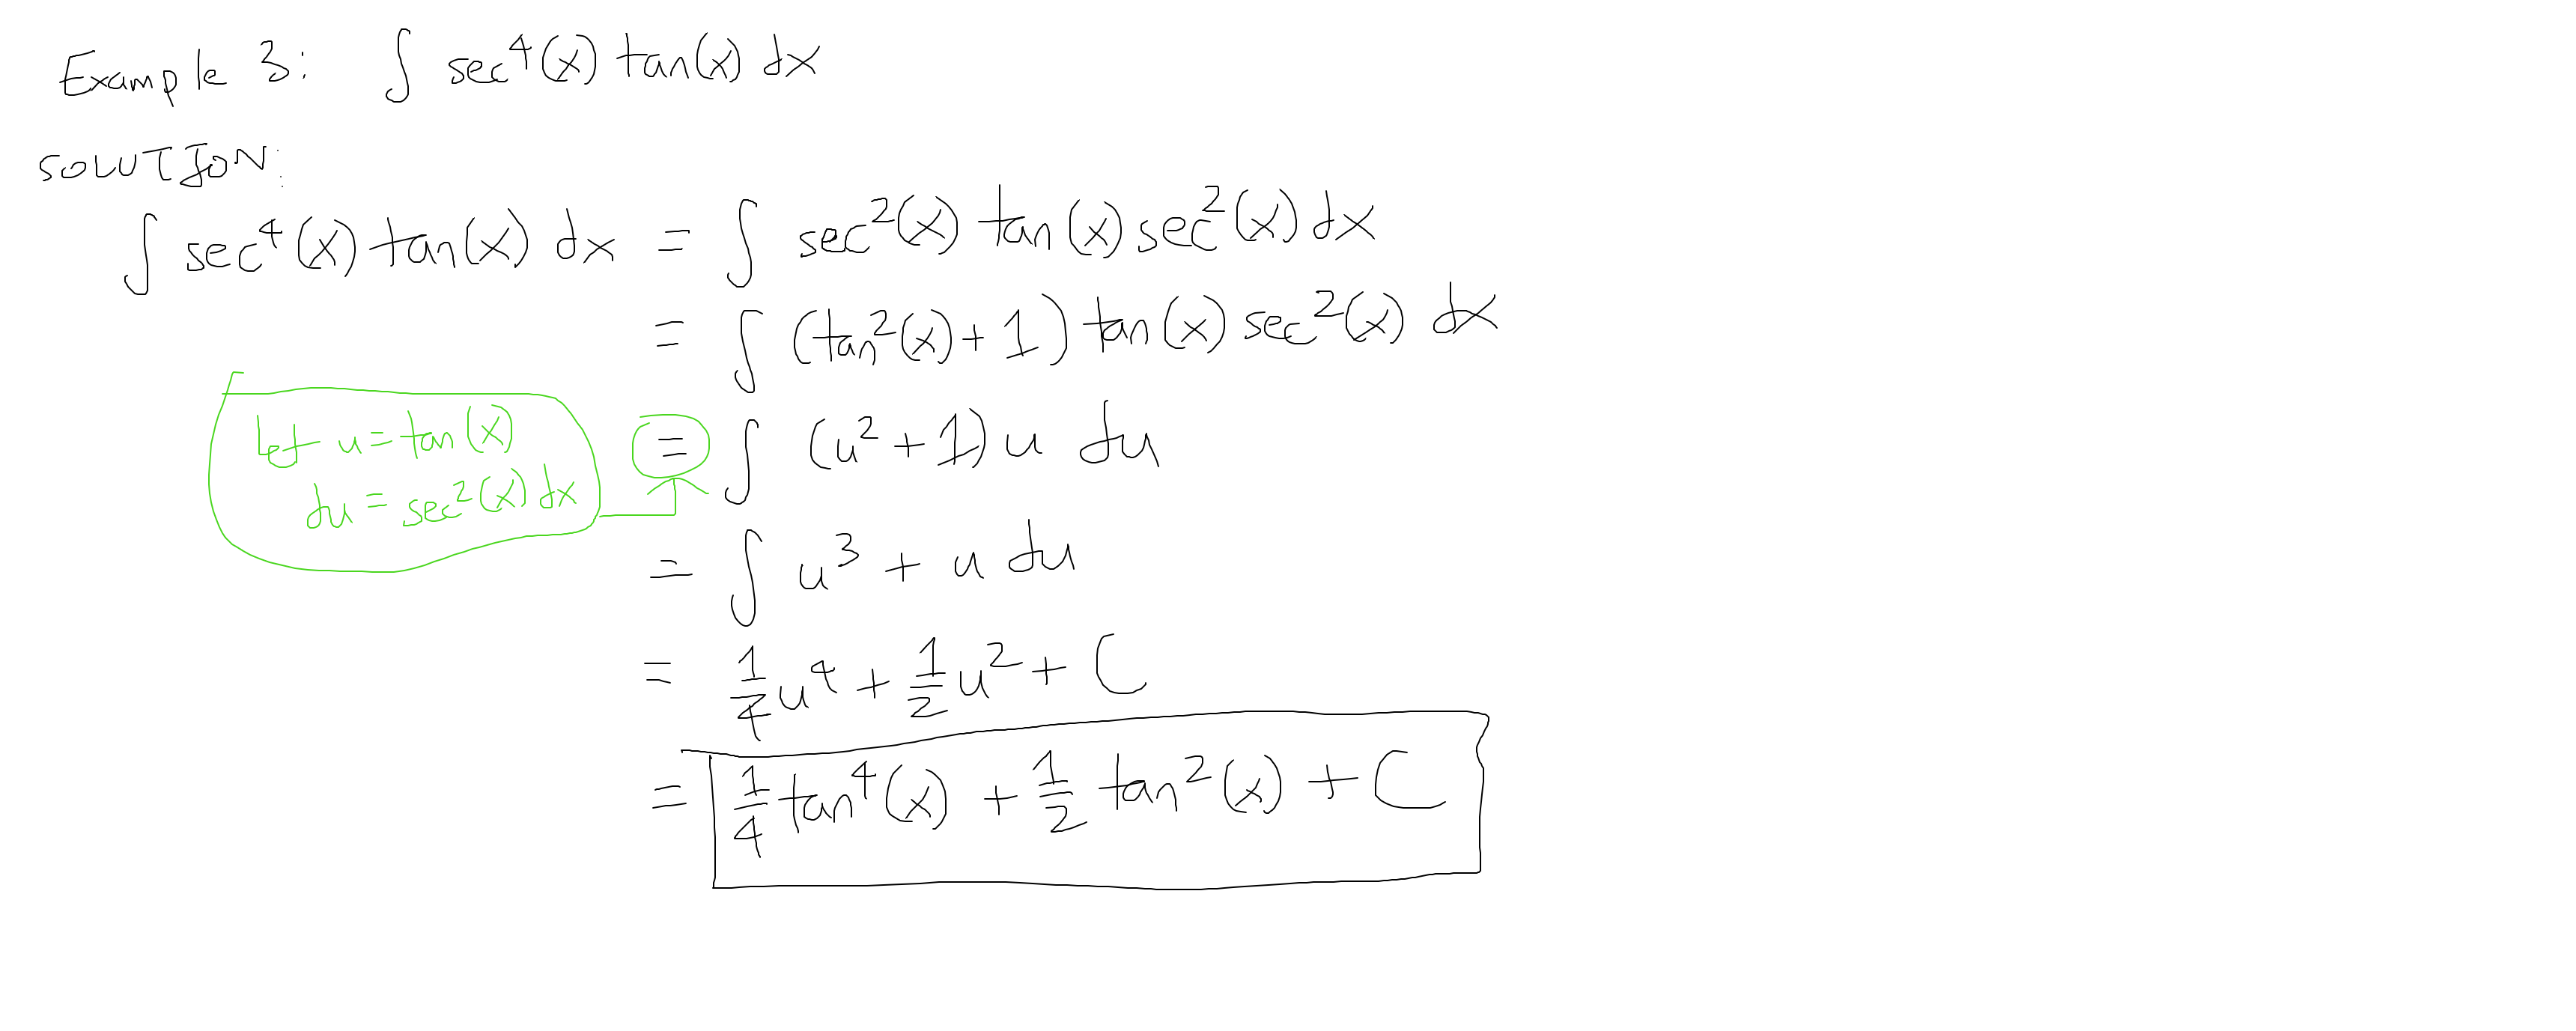 Example 3: ∫ sec⁴(x) tan(x) dx
SOLUTION:
∫ sec⁴(x) tan(x) dx = ∫ sec²(x) tan(x) sec²(x) dx
= ∫ (tan²(x) + 1) tan(x) sec²(x) dx
Let u = tan(x)
du = sec²(x) dx
= ∫ (u² + 1) u du
= ∫ u³ + u du
= 1/4 u⁴ + 1/2 u² + C
= 1/4 tan⁴(x) + 1/2 tan²(x) + C